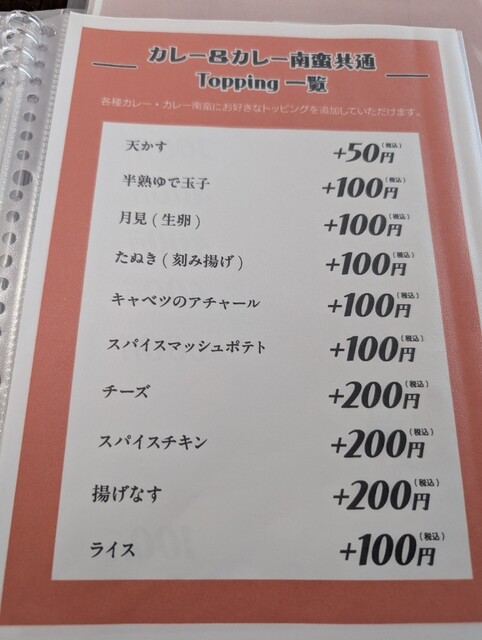 カレー&カレー南蛮共通
Topping 一覧
各種カレー・カレー南蛮にお好きなトッピングを追加していただけます。
天かす +50円(税込)
半熟ゆで玉子 +100円(税込)
月見(生卵) +100円(税込)
たぬき(刻み揚げ) +100円(税込)
キャベツのアチャール +100円(税込)
スパイスマッシュポテト +100円(税込)
チーズ +200円(税込)
スパイスチキン +200円(税込)
揚げなす +200円(税込)
ライス +100円(税込)